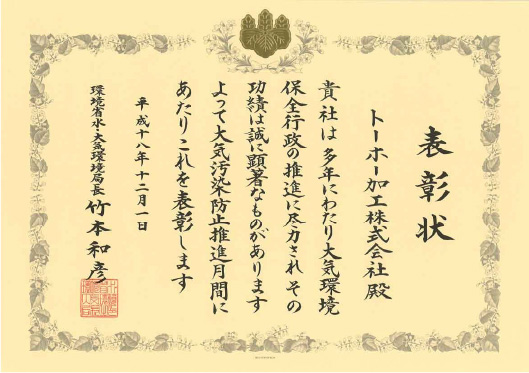 表彰状
トーホー加工株式会社殿
貴社は多年にわたり大気環境
保全行政の推進に尽力されその
功績は誠に顕著なものがあります
よって大気汚染防止推進月間に
あたりこれを表彰します
平成十八年十二月一日
環境省水・大気環境局長 竹本和彦